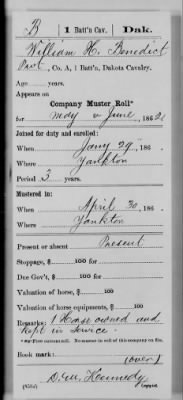 B | 1 Batt'n Cav. | Dak.
William H. Benedict
Pvt., Co. A, 1 Batt'n, Dakota Cavalry.
Age years.
Appears on
Company Muster Roll*
for May & June, 1862.
Joined for duty and enrolled:
When Jany 29, 186
Where Yankton
Period 3 years.
Mustered in:
When April 30, 186
Where Yankton
Present or absent Present
Stoppage, $ 100 for
Due Gov't, $ 100 for
Valuation of horse, $ 100
Valuation of horse equipments, $ 100
Remarks: 1 Horse owned and
kept in service.
Book mark:
(over)
D. M. Kennedy
Copyist.